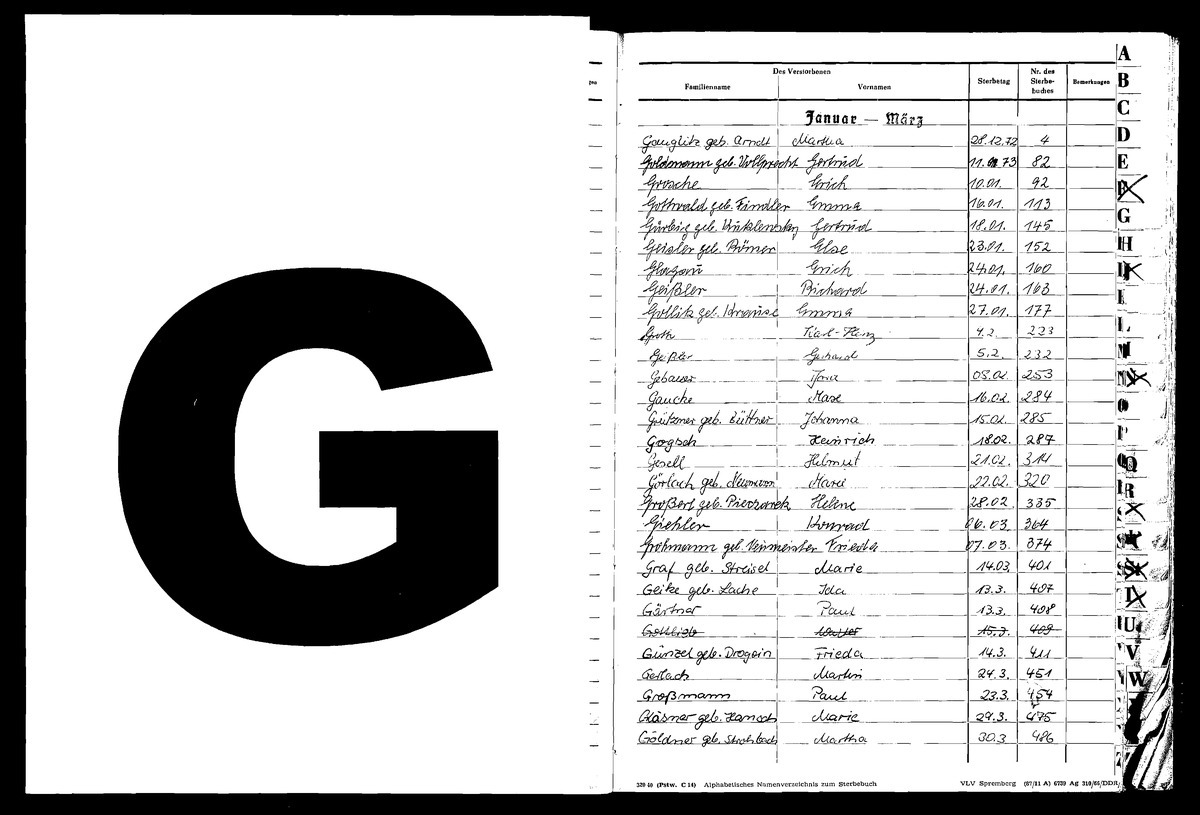 G
Des Verstorbenen
Familienname Vornamen Sterbetag Nr. des Sterbe-buches Bemerkungen
Januar — März
Gauglitz geb. Arndt Martha 28.12.72 4
Goldmann geb. Vollprecht Gertrud 11. 73 82
Grosche Erich 10.01. 92
Gottwald geb. Findler Emma 16.01. 113
Gürbig geb. Gertrud 18.01. 145
Geisler geb. Römer Else 23.01. 152
Glogau Erich 24.01. 160
Geißler Richard 24.01. 163
Gollitz geb. Krause Emma 27.01. 177
Groth Karl-Heinz 4.2. 223
Geißler Gerhard 5.2. 232
Gebauer 05.02. 253
Gaucke Max 16.02. 284
Grützner geb. Büttner Johanna 15.02. 285
Gogsch Heinrich 18.02. 287
Gesell Helmut 21.02. 314
Görlach geb. Neumann Marie 22.02. 320
Großert geb. Helene 28.02 335
Giehler Konrad 06.03. 364
Gröhmann geb. Frieda 07.03. 374
Graf geb. Streisel Marie 14.03. 401
Geike geb. Lache Ida 13.3. 407
Gärtner Paul 13.3. 408
Gottlieb Walter 15.3. 409
Günzel geb. Drogoin Frieda 14.3. 411
Gerlach Martin 24.3. 451
Großmann Paul 23.3. 454
Gläsner geb. Hanusch Marie 29.3. 475
Göldner geb. Strohbach Martha 30.3 486
A
B
C
D
E
G
H
L
M
O
P
Q
R
U
V
W
Z
320 40 (Pstw. C 14) Alphabetisches Namenverzeichnis zum Sterbebuch VLV Spremberg (67/11 A) 6739 Ag 310/66/DDR